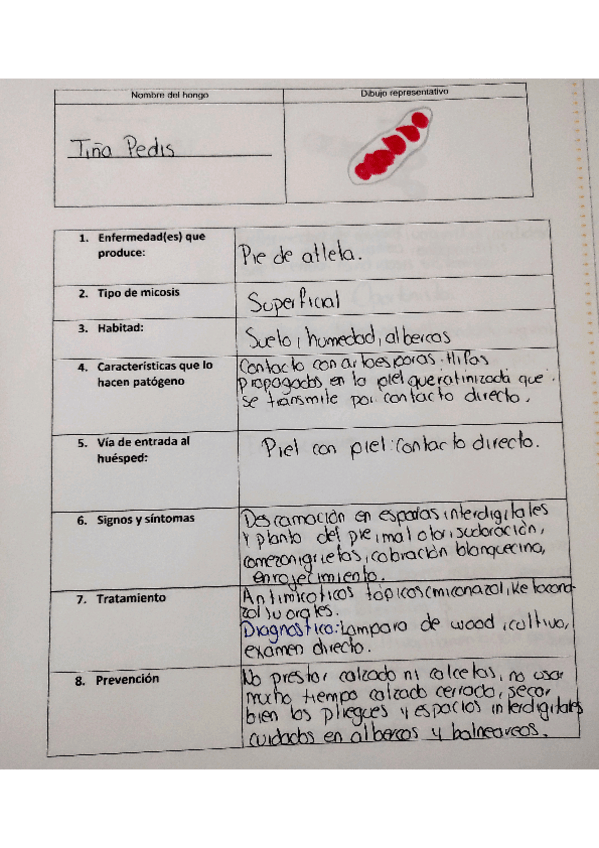 Nombre del hongo
Dibujo representativo
Tiña Pedis
1. Enfermedad(es) que
produce:
Pie de atleta.
2. Tipo de micosis
Superficial
3. Habitad:
Suelo, humedad, albercas
4. Características que lo
hacen patógeno
Contacto con artoesporas. Hifas
propagadas en la piel queratinizada que
se transmite por contacto directo.
5. Vía de entrada al
huésped:
Piel con piel: Contacto directo.
6. Signos y síntomas
Descamación en espacios interdigitales
y planta del pie, mal olor, sudoración,
comezon, grietas, cobración blanquecina,
enrojecimiento.
7. Tratamiento
Antimicoticos topicos (miconazol, ketocona-
zol) u orales.
Diagnostico: Lampara de wood, cultivo,
examen directo.
8. Prevención
No prestar calzado ni calcetas, no usar
mucho tiempo calzado cerrado, secar
bien los pliegues y espacios interdigitales
cuidados en albercas y balneareos.